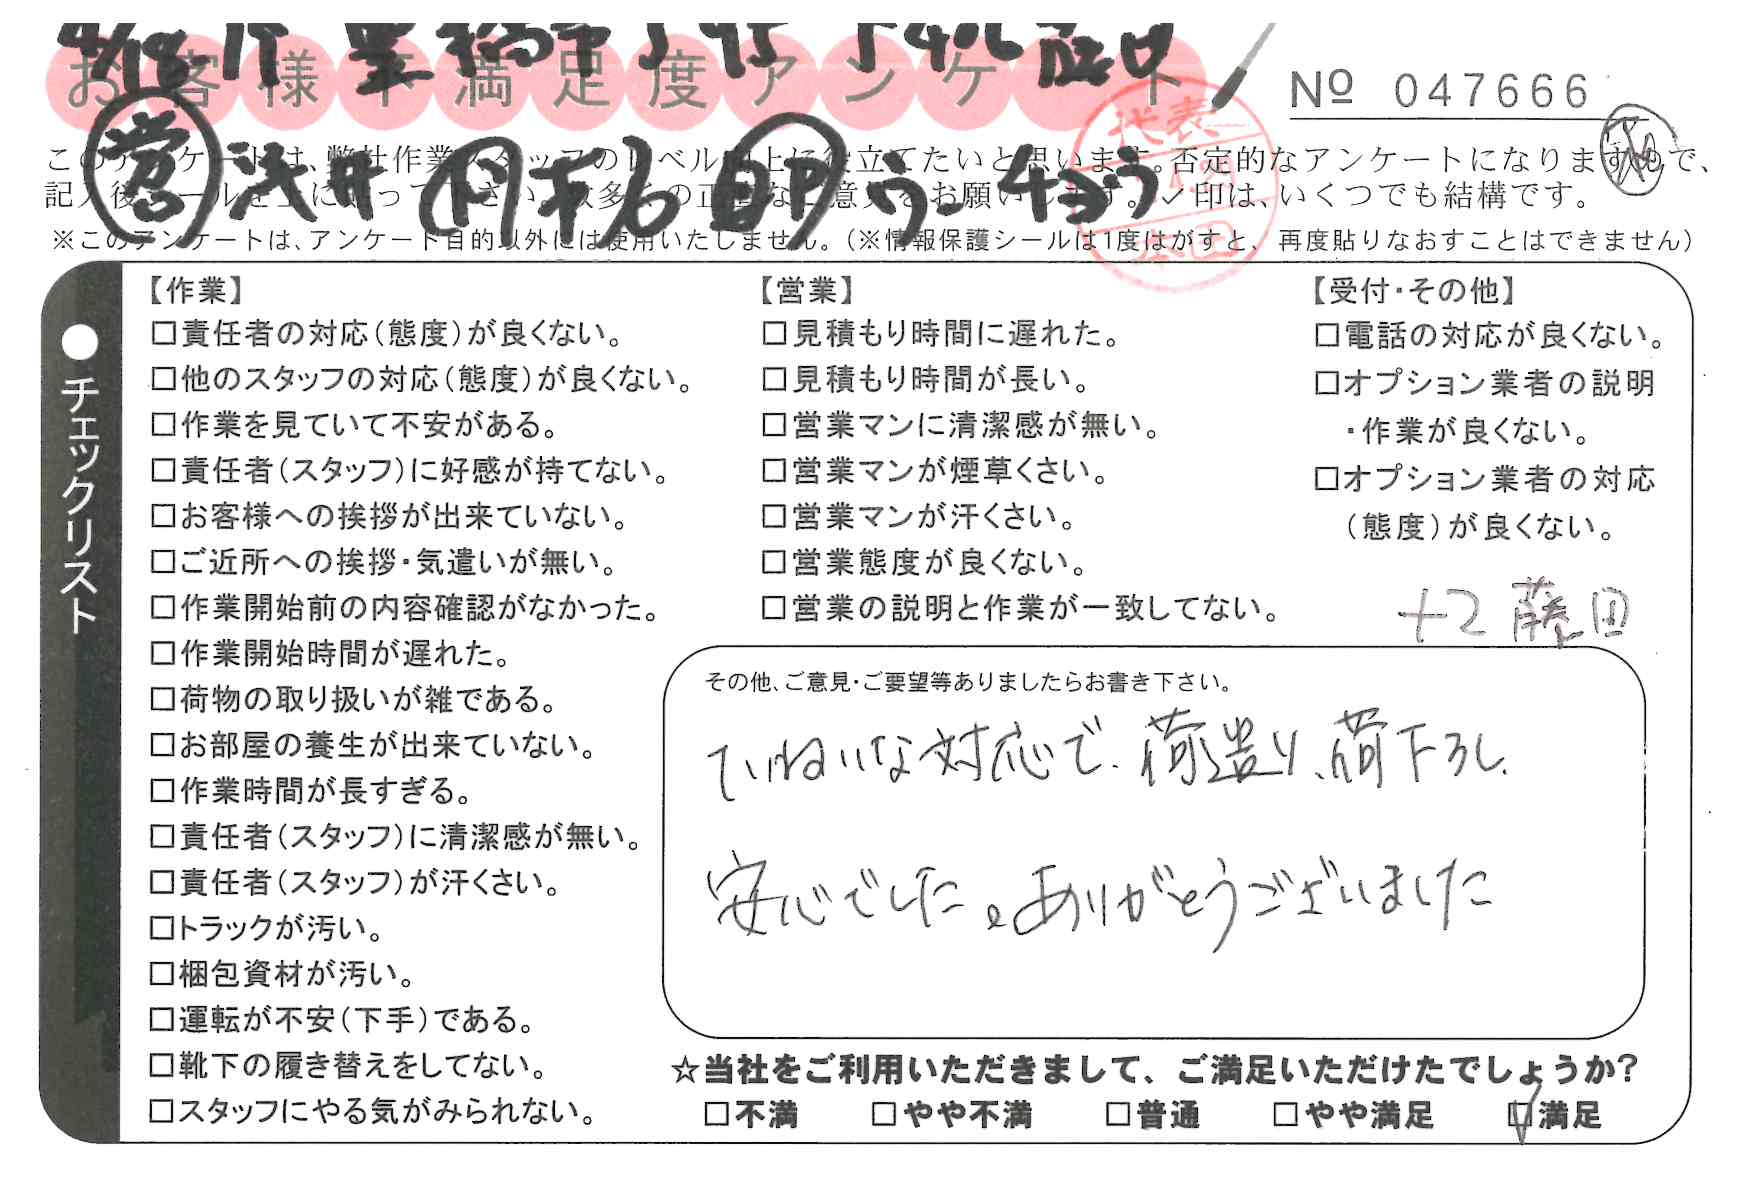 お客様不満足度アンケート
№ 047666
営 浅井
このアンケートは、弊社作業スタッフのレベル向上に役立てたいと思います。否定的なアンケートになりますので、
記入後シールを上に貼って下さい。数多くの正直なご意見をお願いします。✓印は、いくつでも結構です。
※このアンケートは、アンケート目的以外には使用いたしません。(※情報保護シールは1度はがすと、再度貼りなおすことはできません)
●チェックリスト
【作業】
□責任者の対応(態度)が良くない。
□他のスタッフの対応(態度)が良くない。
□作業を見ていて不安がある。
□責任者(スタッフ)に好感が持てない。
□お客様への挨拶が出来ていない。
□ご近所への挨拶・気遣いが無い。
□作業開始前の内容確認がなかった。
□作業開始時間が遅れた。
□荷物の取り扱いが雑である。
□お部屋の養生が出来ていない。
□作業時間が長すぎる。
□責任者(スタッフ)に清潔感が無い。
□責任者(スタッフ)が汗くさい。
□トラックが汚い。
□梱包資材が汚い。
□運転が不安(下手)である。
□靴下の履き替えをしてない。
□スタッフにやる気がみられない。
【営業】
□見積もり時間に遅れた。
□見積もり時間が長い。
□営業マンに清潔感が無い。
□営業マンが煙草くさい。
□営業マンが汗くさい。
□営業態度が良くない。
□営業の説明と作業が一致してない。
【受付・その他】
□電話の対応が良くない。
□オプション業者の説明
・作業が良くない。
□オプション業者の対応
(態度)が良くない。
+2 藤田
その他、ご意見・ご要望等ありましたらお書き下さい。
ていねいな対応で、荷造り、荷下ろし、
安心でした。ありがとうございました
☆当社をご利用いただきまして、ご満足いただけたでしょうか?
□不満 □やや不満 □普通 □やや満足 ☑満足